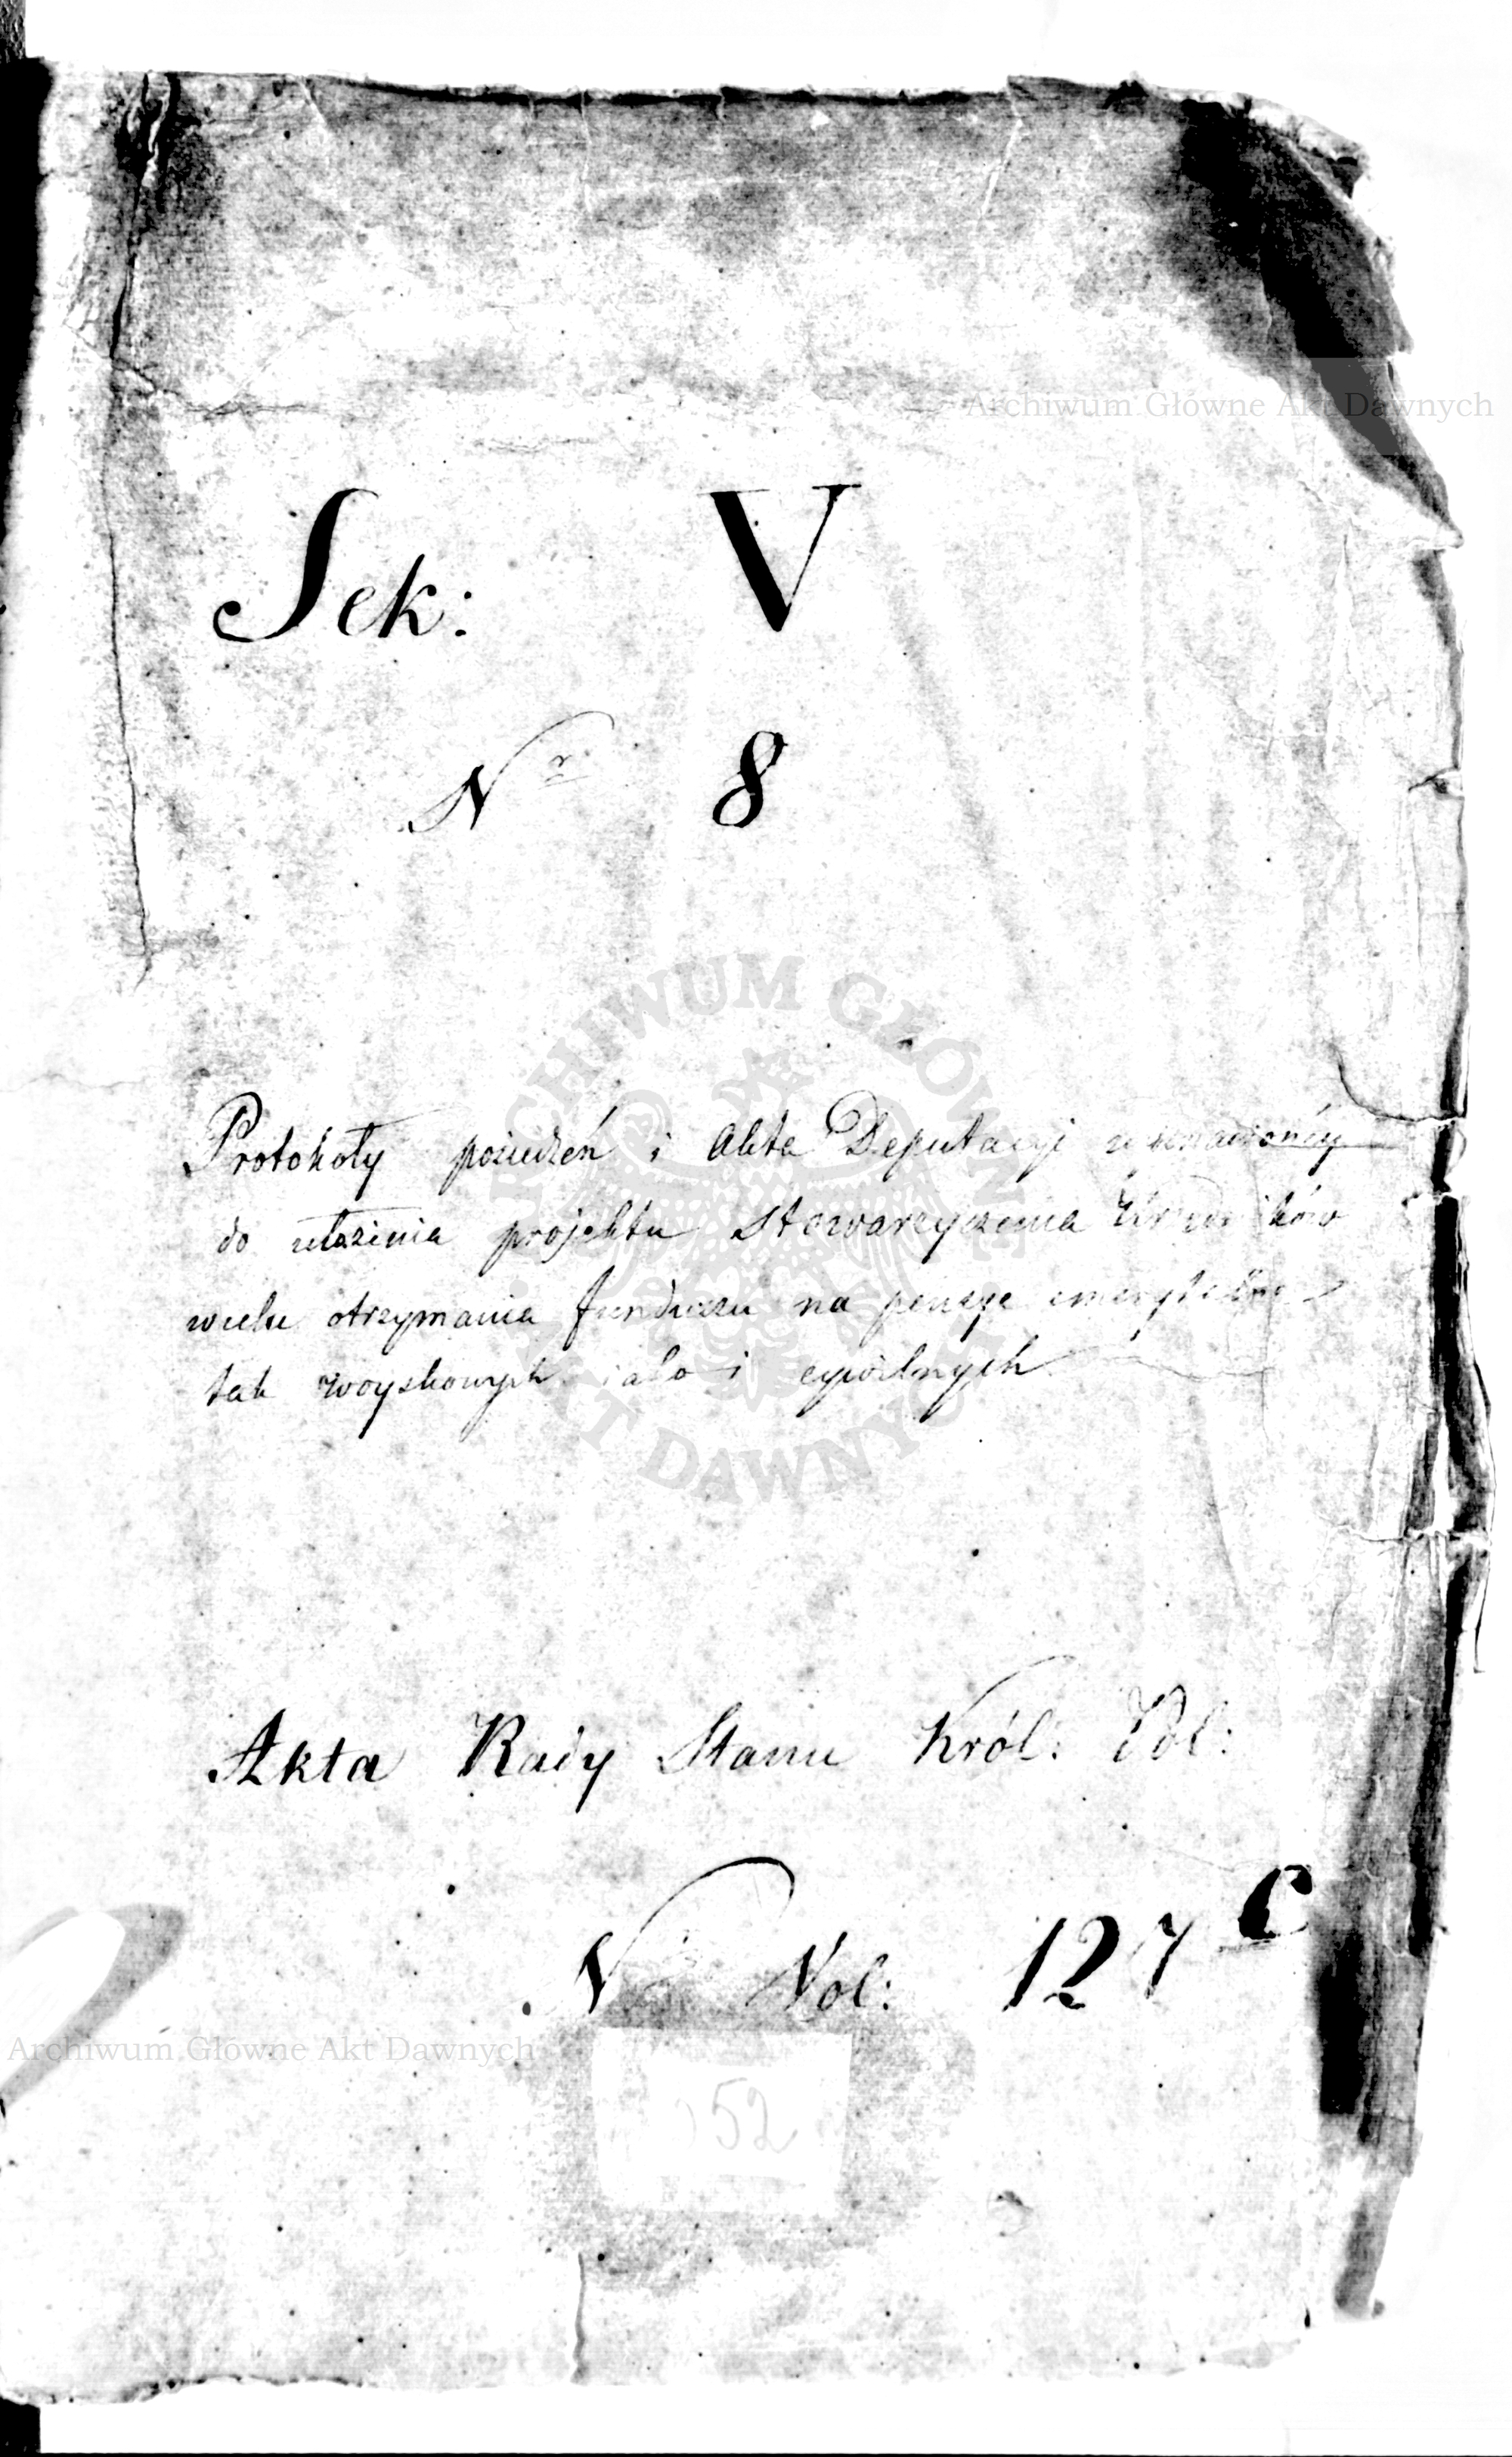 Archiwum Główne Akt Dawnych
Sek: V
Nr 8
ARCHIWUM GŁÓWNE
AKT DAWNYCH
Protokoły posiedzeń i Akta Deputacyi wyznaczonéy
do ułożenia projektu Stowarzyszenia Urzędników
wcelu otrzymania funduszu na pensye emerytalne
tak woyskowych iako i cywilnych
Akta Rady Stanu Król: Pol:
N Vol: 127 C
Archiwum Główne Akt Dawnych
52